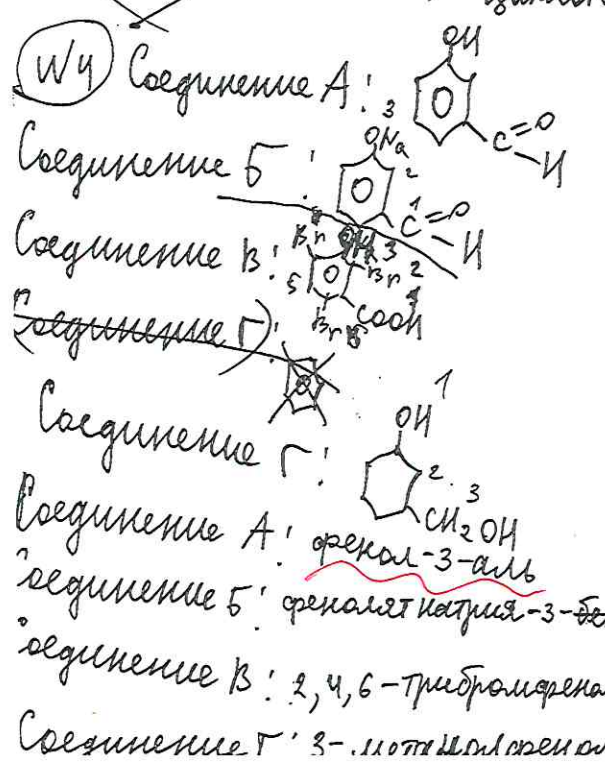 №4 Соединение А:
OH
C=O
H
Соединение Б:
3
ONa
2
1
C=O
H
Соединение В:
Br OH 3
Br 2
5
Br 6 COOH
(Соединение Г):
Соединение Г:
OH 1
2
3
CH2OH
Соединение А: фенол-3-аль
оединение Б: фенолят натрия-3-
оединение В: 2,4,6-трибромфено
Соединение Г: 3-